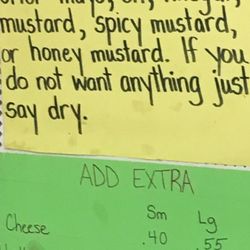 mustard, spicy mustard,
or honey mustard. If you
do not want anything just
say dry.
ADD EXTRA
Sm Lg
Cheese .40 .55